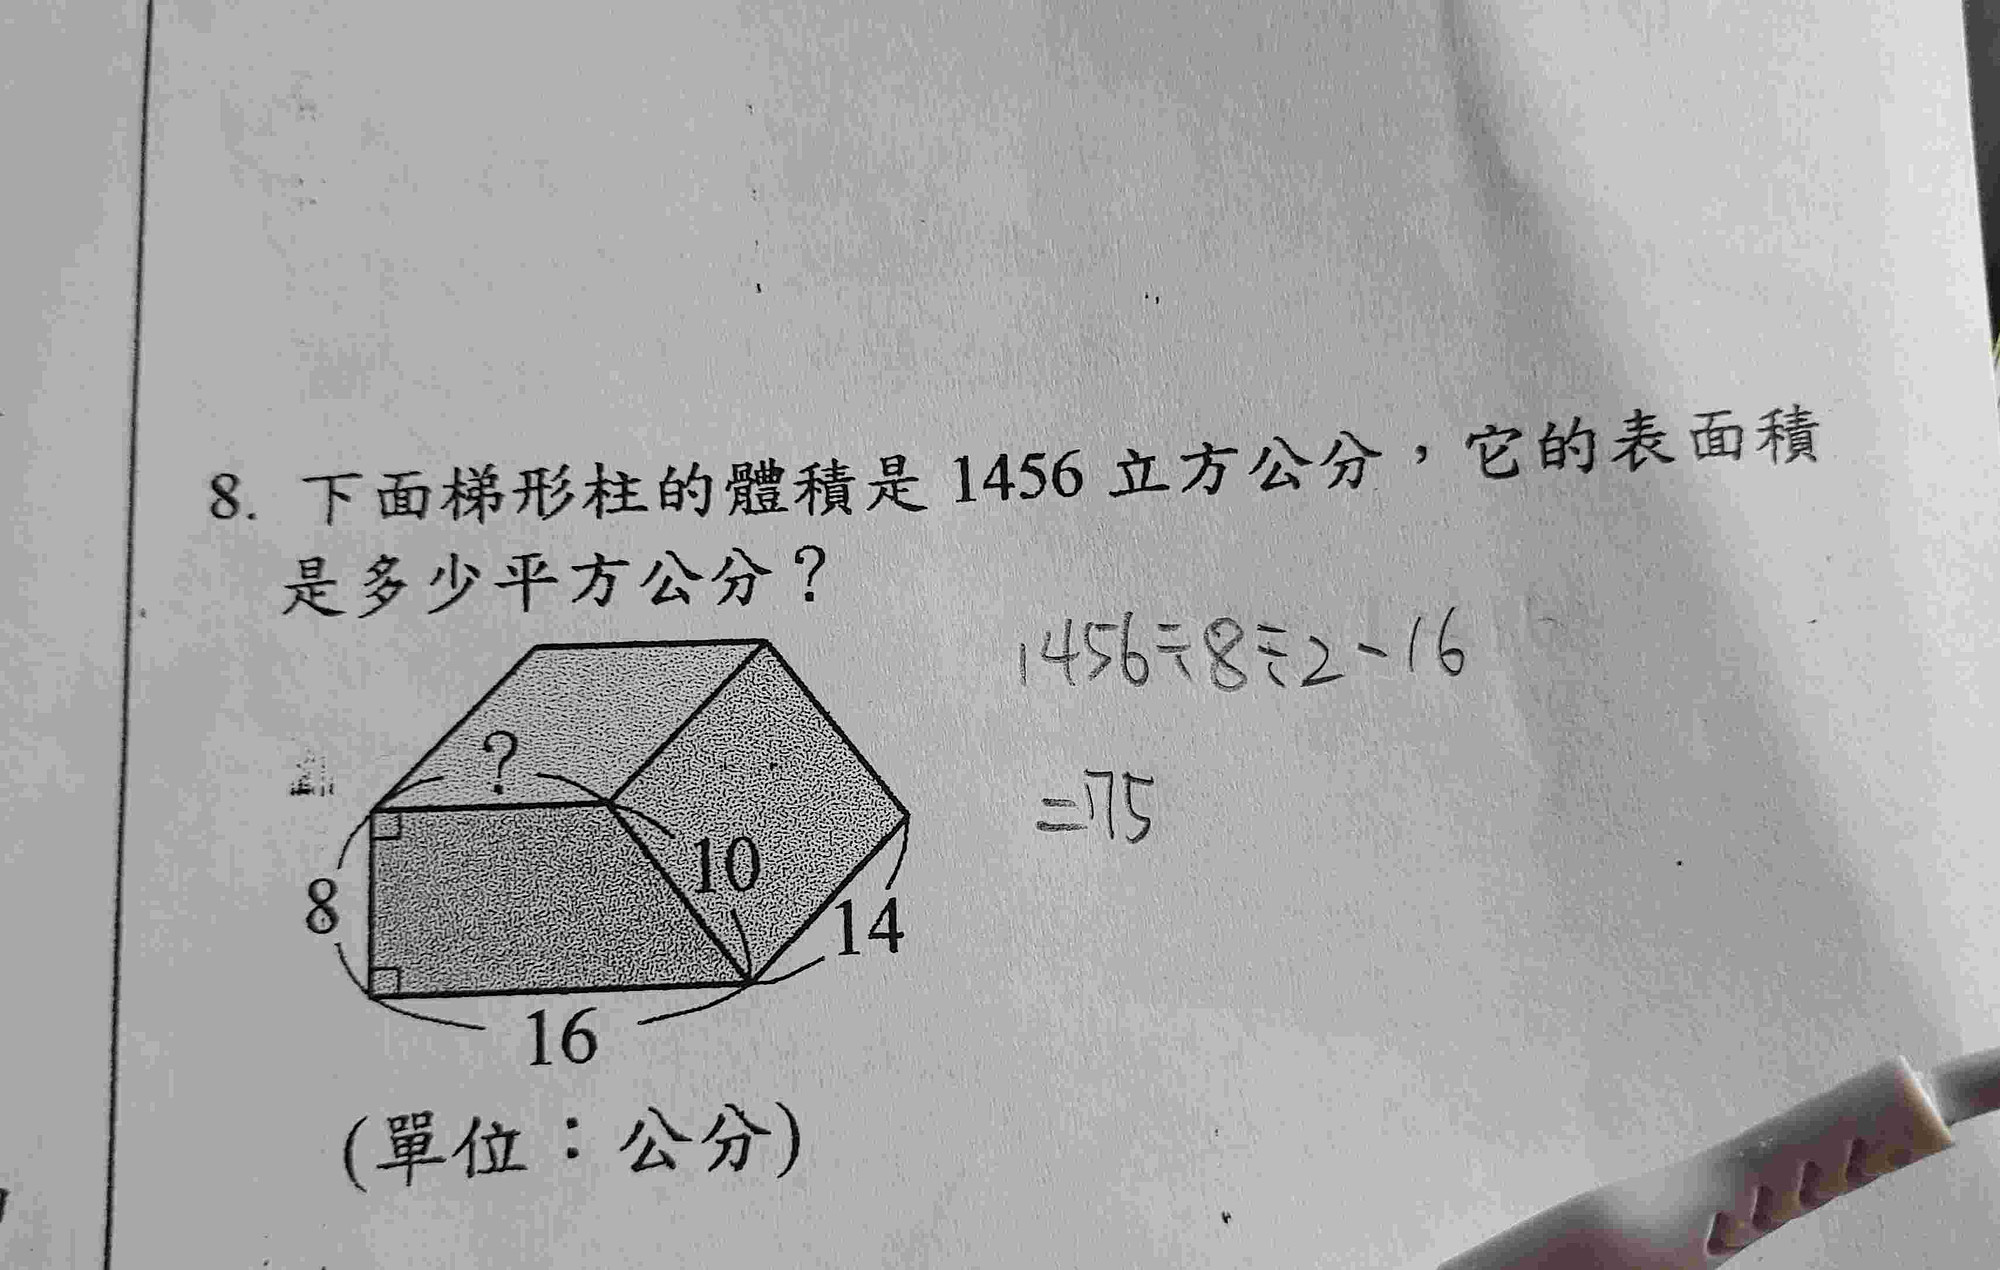 8. 下面梯形柱的體積是 1456 立方公分，它的表面積
是多少平方公分？
1456÷8÷2-16
=75
?
8
10
14
16
(單位：公分)